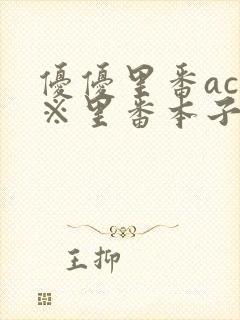 優優里番ac
※里番本子
王抑